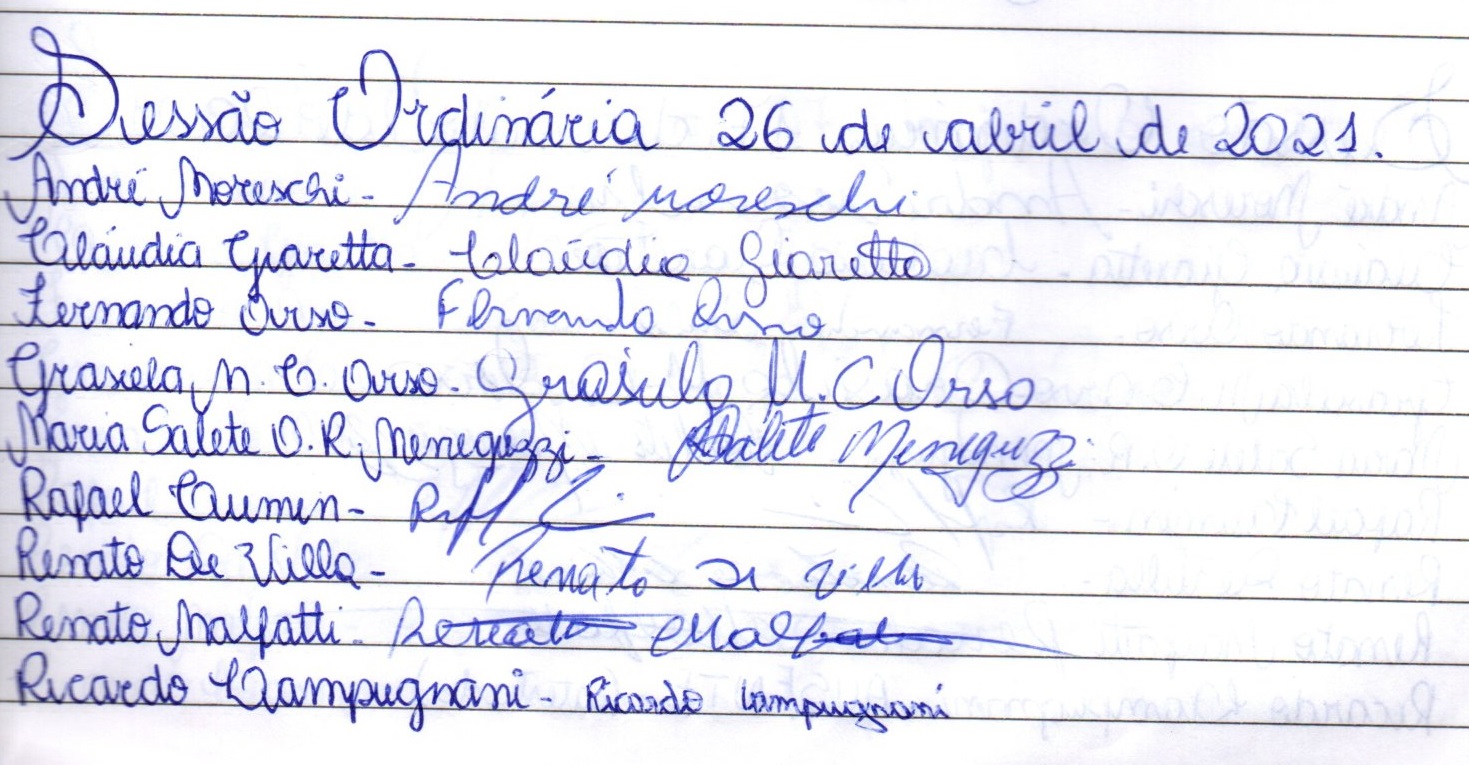 Sessão Ordinária 26 de abril de 2021.
André Moreschi - André Moreschi
Cláudia Giaretta - Claúdia Giaretta
Fernando Orso - Fernando Orso
Grasiela M. C. Orso - Grasiela M. C Orso
Maria Salete O. R. Meneguzzi - Salete Meneguzzi
Rafael -
Renato De Villa - Renato De Villa
Renato Malfatti - Renato Malfatti
Ricardo Lampugnani - Ricardo Lampugnani